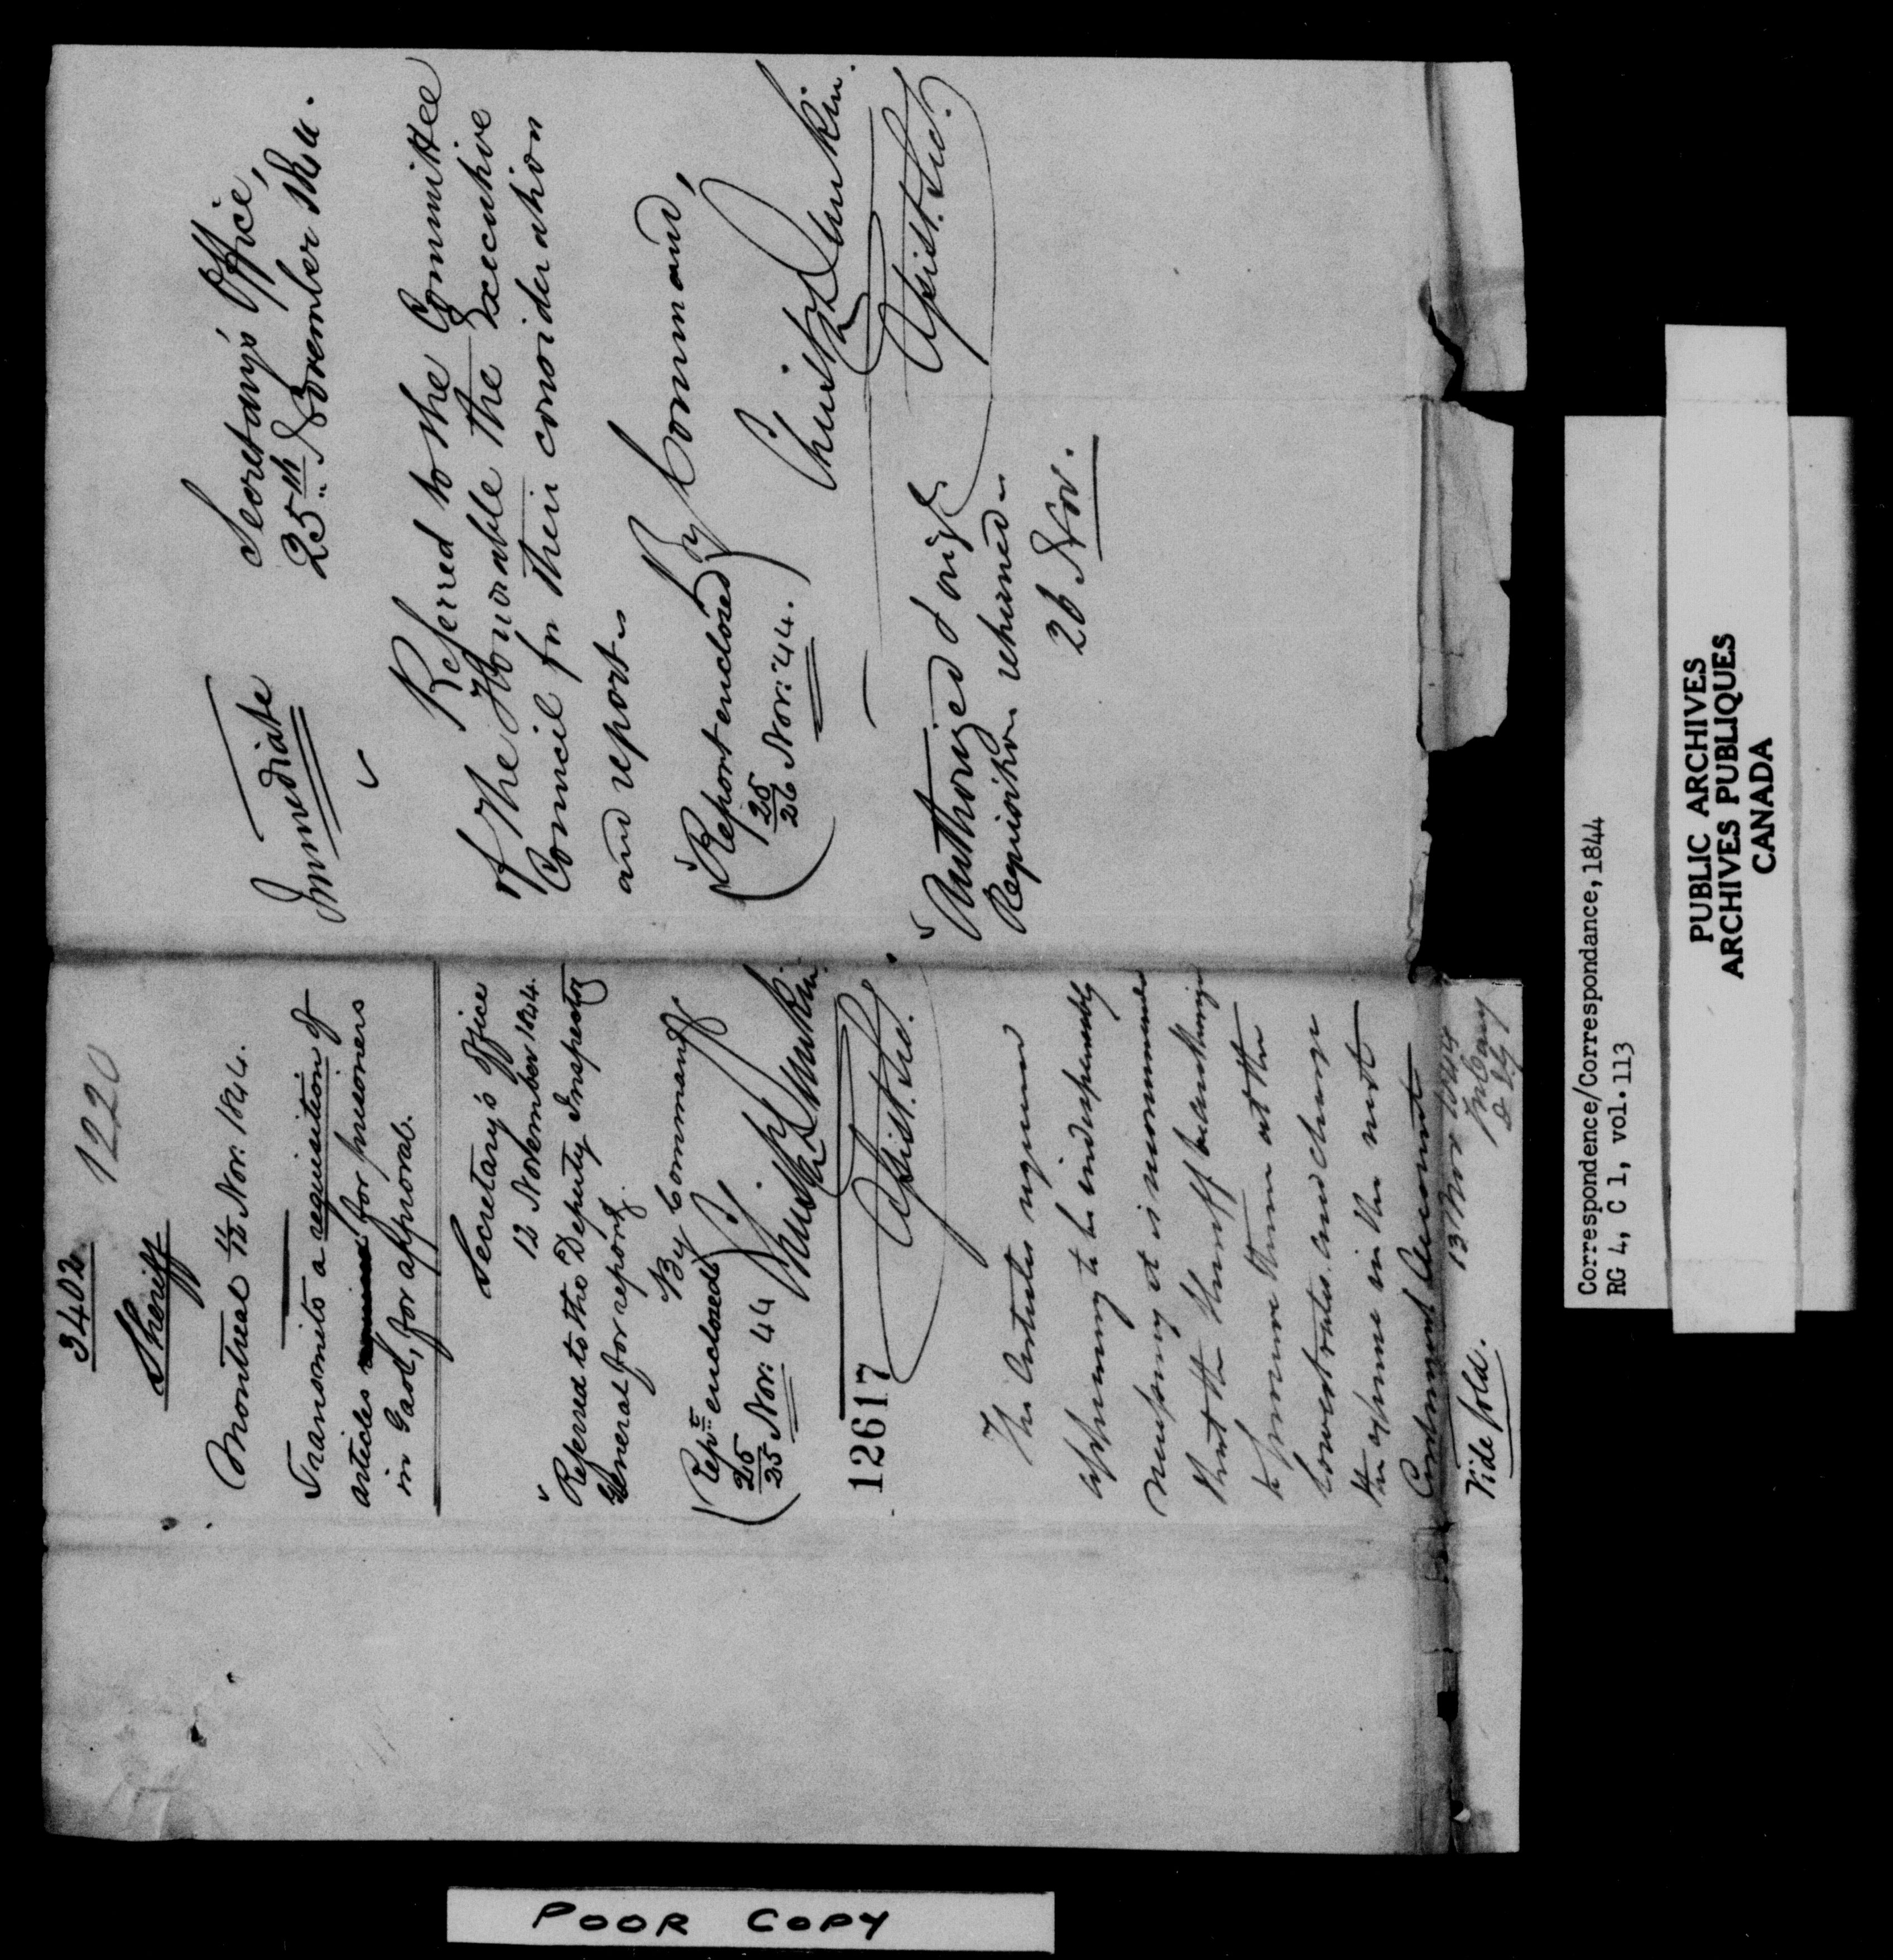 3402.
1220
Sheriff
Montreal 11/12 Nov: 1844.
Transmits a requisition of
articles for prisoners
in Gaol, for approval.
Secretary's Office
12 November 1844.
Referred to the Deputy Inspector
General for report.
By Command
(Rept enclosed
25/25 Nov: 44
Christr Dunkin.
Assist. Sec.
12617
The Articles required
appearing to be indispensably
necessary it is recommended
that the Sheriff be authorized
to procure them at the
lowest rates and charge
the expense in the next
Contingent Account
13 Nov 1844
D I G
Vide fold.
Immediate
Secretary's Office,
25th November 1844.
Referred to the Committee
of the Honorable the Executive
Council for their consideration
and report
By Command,
(Report enclosed)
25/26 Nov: 44.
Christr Dunkin.
Assist. Sec.
Authorized & origl
Requisition returned
26 Nov.
Correspondence/Correspondance,1844
RG 4, C 1, vol.113
PUBLIC ARCHIVES
ARCHIVES PUBLIQUES
CANADA
POOR COPY